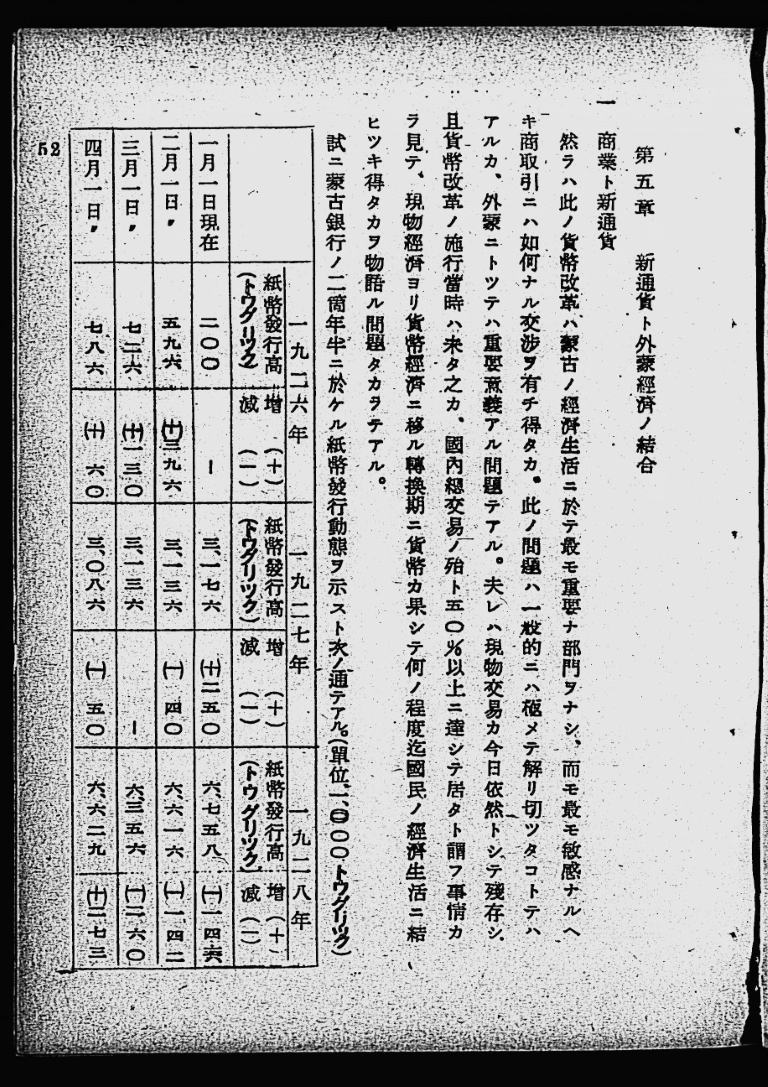 第五章　新通貨ト外蒙經濟ノ結合
一
商業ト新通貨
然ラハ此ノ貨幣改革ハ蒙古ノ經濟生活ニ於テ最モ重要ナ部門ヲナシ、而モ最モ敏感ナルヘ
キ商取引ニハ如何ナル交渉ヲ有チ得タカ。此ノ問題ハ一般的ニハ極メテ解リ切ツタコトテハ
アルカ、外蒙ニトツテハ重要意義アル問題テアル。夫レハ現物交易カ今日依然トシテ殘存シ、
且貨幣改革ノ施行當時ハ未タ之カ、國內總交易ノ殆ト五〇%以上ニ達シテ居タト謂フ事情カ
ラ見テ、現物經濟ヨリ貨幣經濟ニ移ル轉換期ニ貨幣カ果シテ何ノ程度迄國民ノ經濟生活ニ結
ヒツキ得タカヲ物語ル問題タカラテアル。
試ニ蒙古銀行ノ二箇年半ニ於ケル紙幣發行動態ヲ示スト次ノ通テアル。(單位、一、〇〇〇トウグリツク)
一九二六年　一九二七年　一九二八年
紙幣發行高(トウグリツク)　增(十)減(一)　紙幣發行高(トウグリツク)　增(十)減(一)　紙幣發行高(トウグリツク)　增(十)減(一)
一月一日現在　二〇〇　ー　三、一七六　(十)二五〇　六、七五八　(一)一四六
二月一日〃　五九六　(十)三九六　三、一三六　(一)四〇　六、六一六　(一)一四二
三月一日〃　七二六　(十)一三〇　三、一三六　ー　六、三五六　(一)二六〇
四月一日〃　七八六　(十)六〇　三、〇八六　(一)五〇　六、六二九　(十)二七三
52